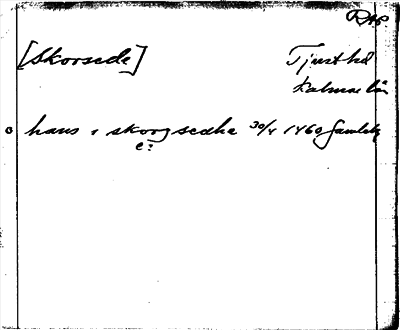 RAP.
[Skorsede] Tjust hd
Kalmar län
o hans i skorgsedhe 30/4 1460 Gamleby
e?